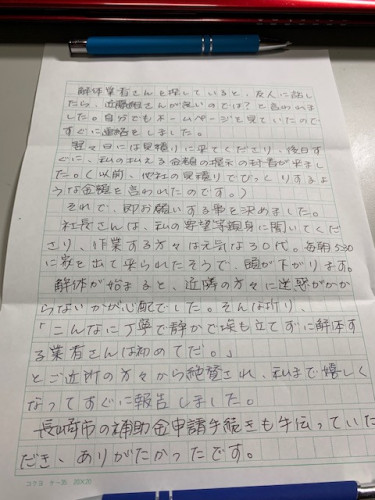 解体業者さんを探していると、友人に話し
たら、近藤組さんが良いのでは?と言われま
した。自分でもホームページを見ていたので
すぐに連絡をしました。
翌々日には見積りに来てくださり、後日す
ぐに、私の払える金額の提示の封書が来まし
た。(以前、他社の見積りでびっくりするよ
うな金額を言われたのです。)
それで、即お願いする事を決めました。
社長さんは、私の要望等親身に聞いてくだ
さり、作業する方々は元気な30代。毎朝5:30
に家を出て来られたそうで、頭が下がります。
解体が始まると、近隣の方々に迷惑がかか
らないかが心配でした。そんな折り、
「こんなに丁寧で静かで埃も立てずに解体す
る業者さんは初めてだ。」
とご近所の方々から絶賛され、私まで嬉しく
なってすぐに報告しました。
長崎市の補助金申請手続きも手伝っていた
だき、ありがたかったです。